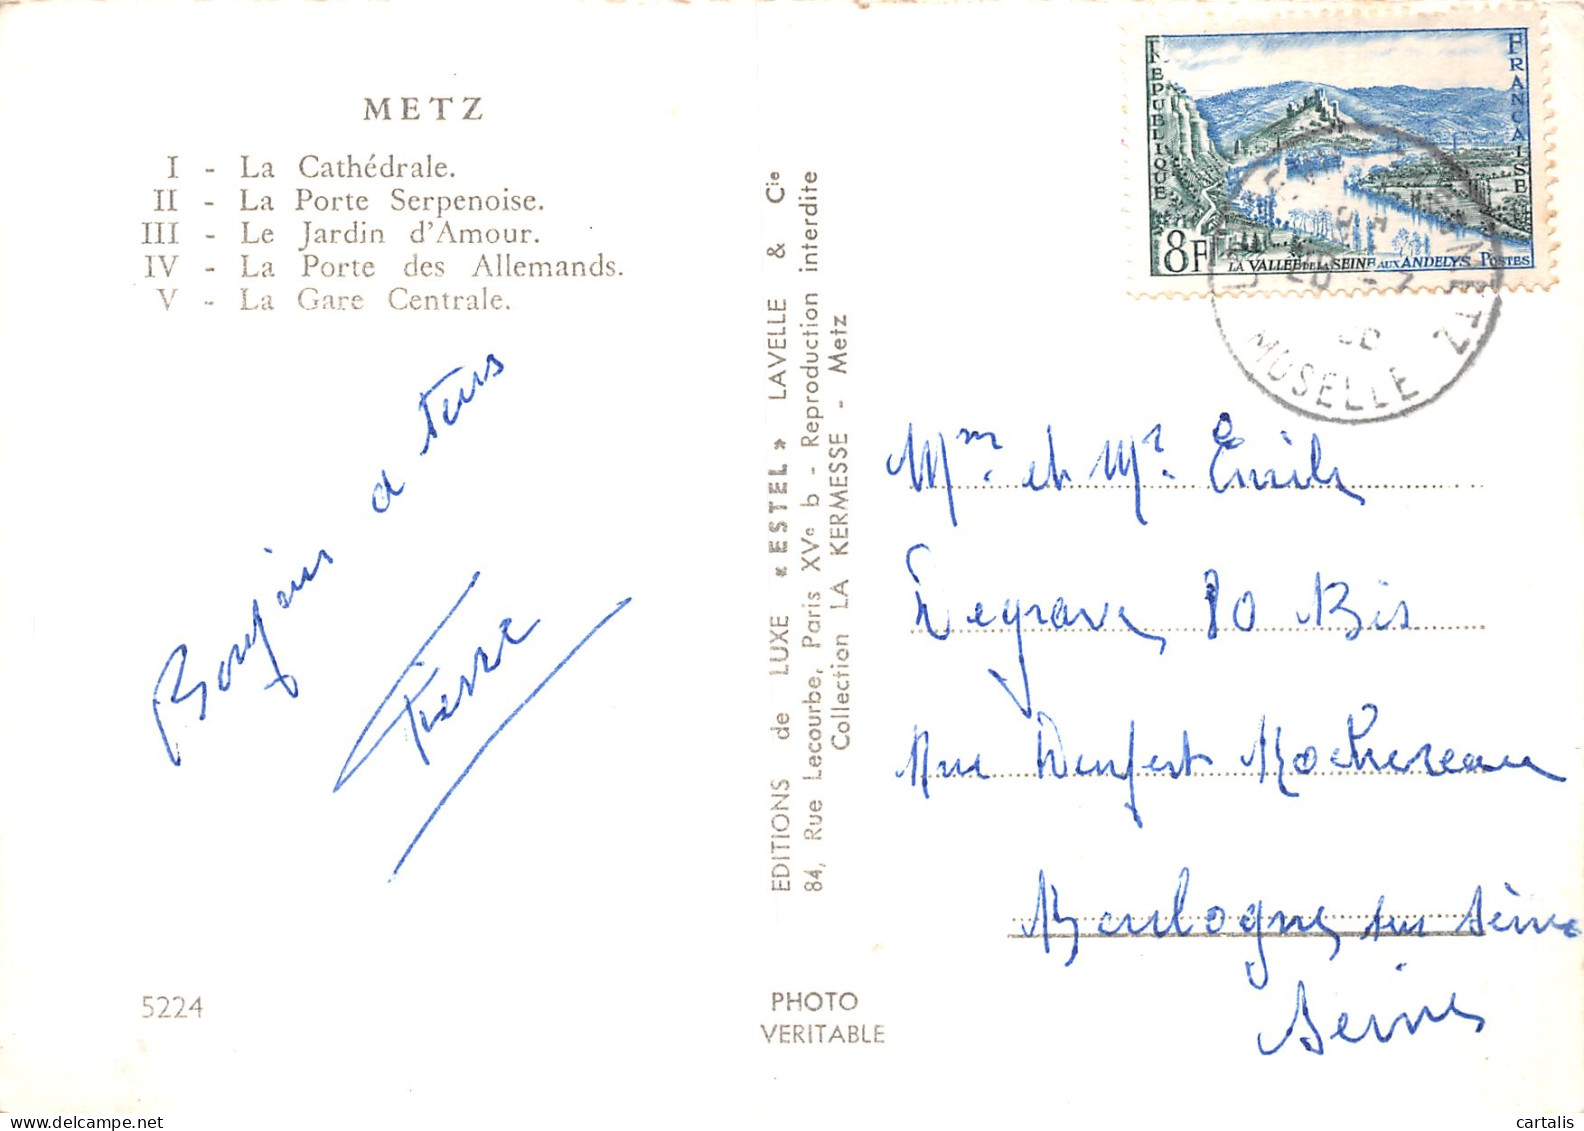 METZ
I - La Cathédrale.
II - La Porte Serpenoise.
III - Le Jardin d'Amour.
IV - La Porte des Allemands.
V - La Gare Centrale.
Bonjour a tous
Pierre
5224
EDITIONS de LUXE « ESTEL » LAVELLE & Cie
84, Rue Lecourbe, Paris XVe b - Reproduction interdite
Collection LA KERMESSE - Metz
PHOTO
VERITABLE
REPUBLIQUE
FRANCAISE
8F
LA VALLEE DE LA SEINE AUX ANDELYS POSTES
METZ
MOSELLE
Mme et Mr Emile
Degrave 80 Bis
Rue Denfert Rochereau
Boulogne sur Seine
Seine
cartalis
delcampe.net